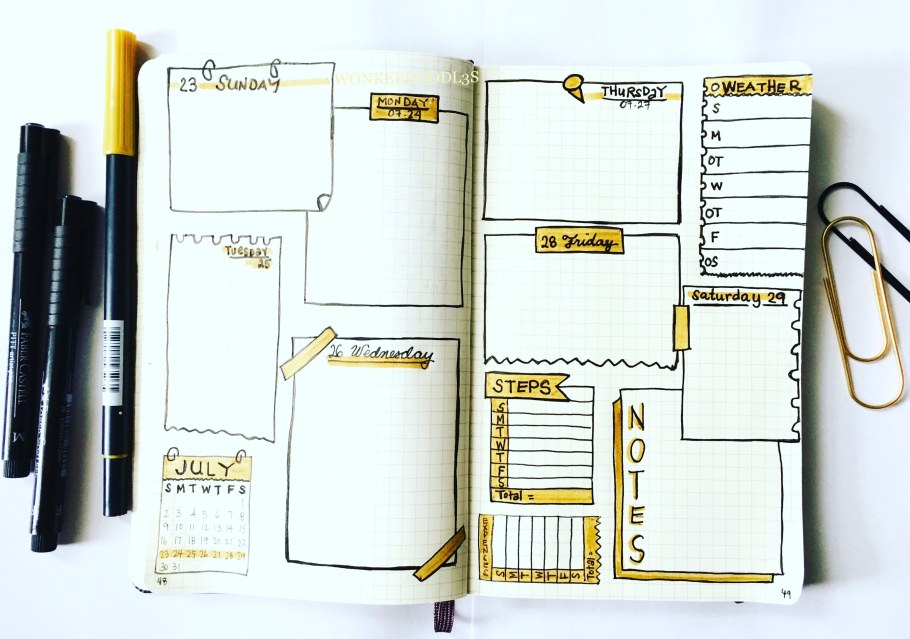 WONKEEDOODL3S
23 SUNDAY
MONDAY
07.24
TUESDAY
25
26 Wednesday
JULY
S M T W T F S
1
2 3 4 5 6 7 8
9 10 11 12 13 14 15
16 17 18 19 20 21 22
23 24 25 26 27 28 29
30 31
48
THURSDAY
07.27
28 Friday
WEATHER
S
M
T
W
T
F
S
Saturday 29
STEPS
S
M
T
W
T
F
S
Total =
NOTES
EXPENSES
S
M
T
W
T
F
S
Total=
49
FABER-CASTELL
PITT artist
M